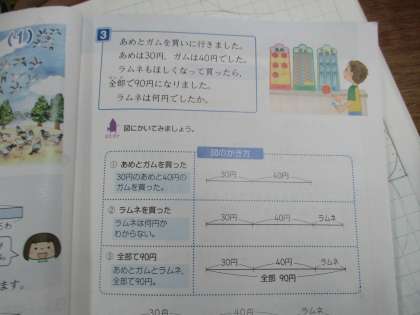 3
あめとガムを買いに行きました。
あめは30円，ガムは40円でした。
ラムネもほしくなって買ったら，
全部で90円になりました。
ラムネは何円でしたか。
図にかいてみましょう。
図のかき方
① あめとガムを買った
30円のあめと40円の
ガムを買った。
30円 40円
② ラムネを買った
ラムネは何円か
わからない。
30円 40円 ラムネ
③ 全部で90円
あめとガムとラムネ，
全部で90円。
30円 40円 ラムネ
全部 90円
30円 40円 ラムネ
ます。